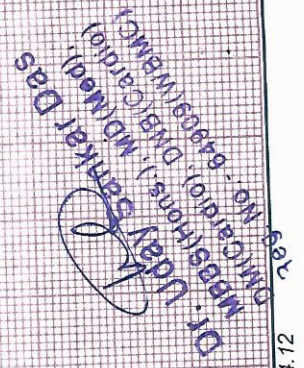 Dr. Uday Sankar Das
MBBS(Hons.), MD(Med),
DM(Cardio), DNB(Cardio)
Reg No.- 64909(WBMC)
4.12